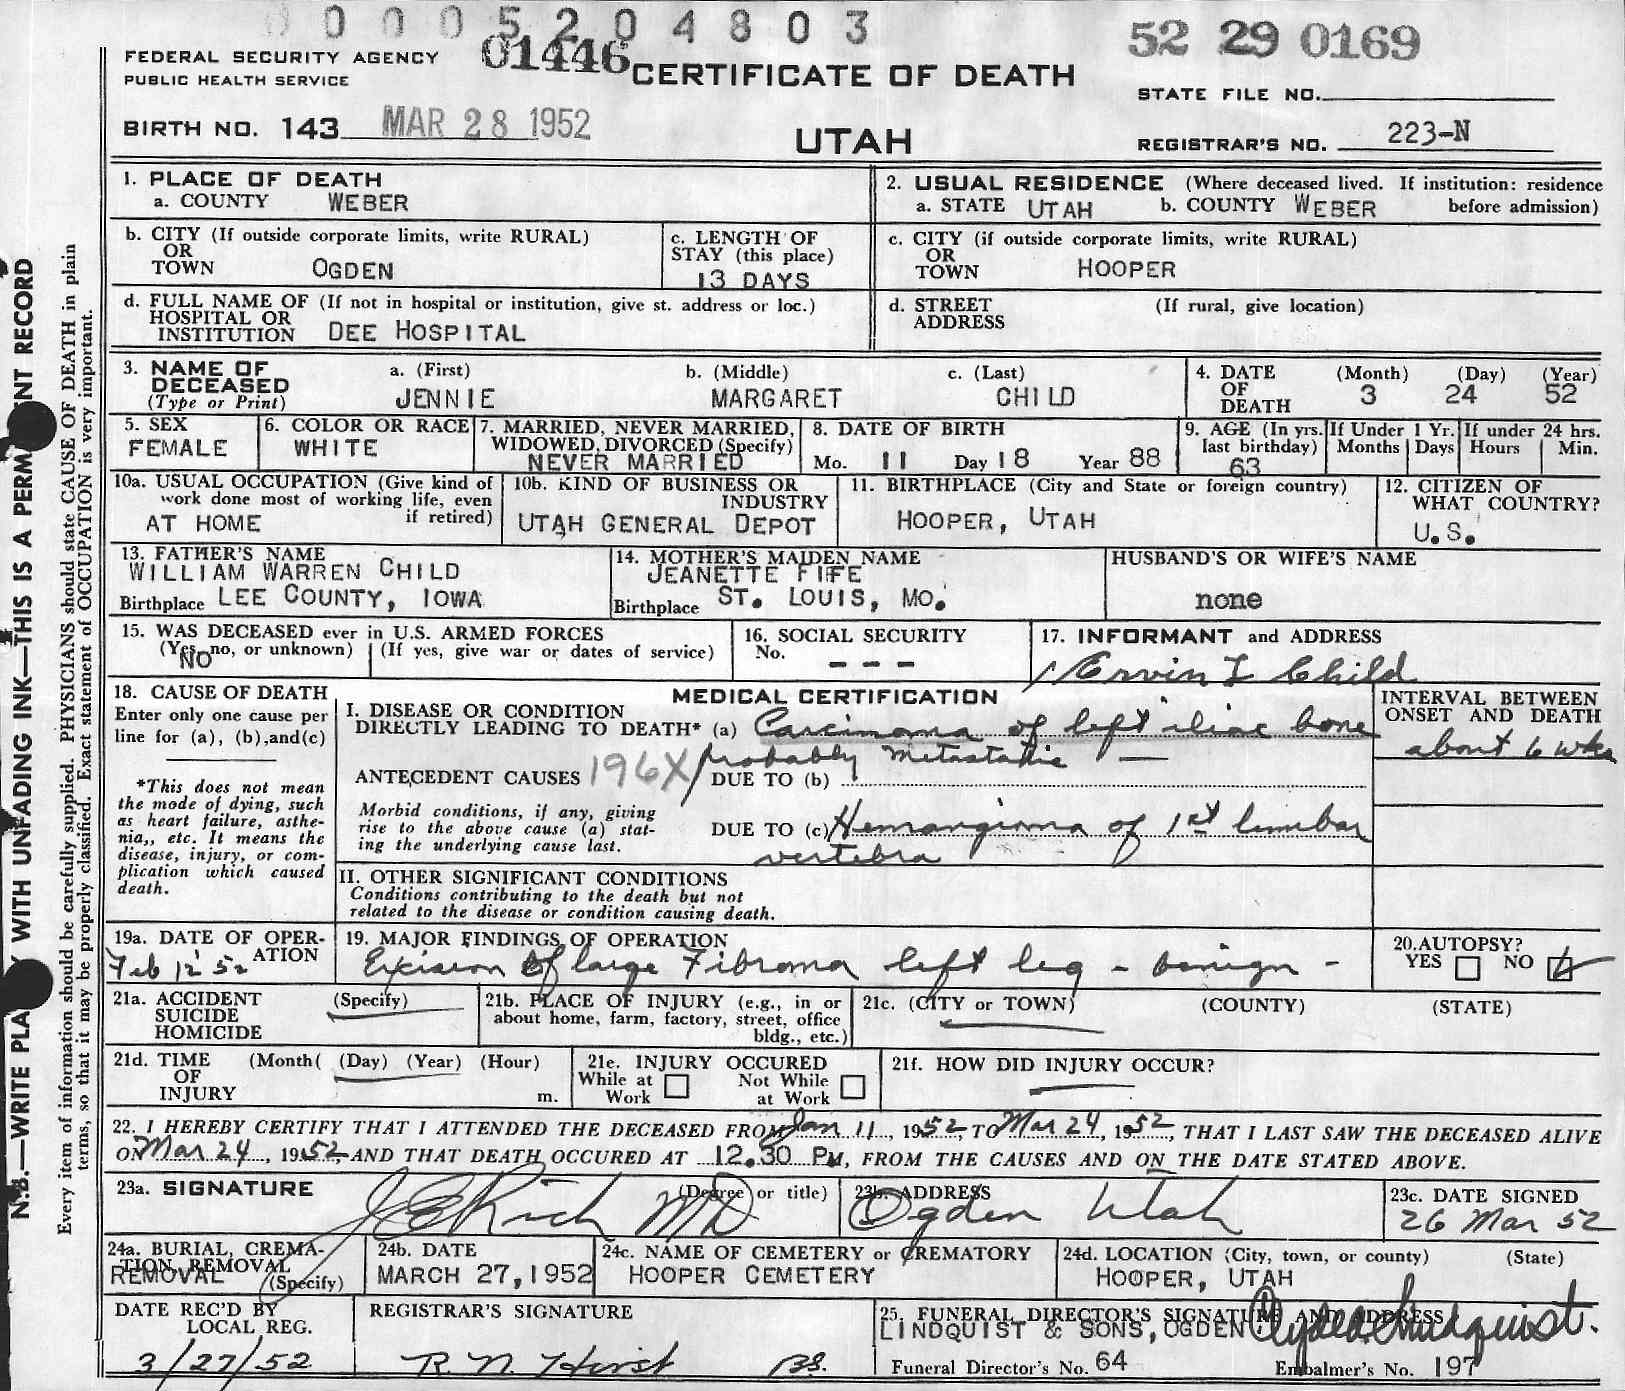 0 0 0 5 2 0 4 8 0 3
52 29 0169
FEDERAL SECURITY AGENCY
PUBLIC HEALTH SERVICE
01446
CERTIFICATE OF DEATH
STATE FILE NO.
BIRTH NO. 143 MAR 28 1952
UTAH
REGISTRAR'S NO. 223-N
N.B.—WRITE PLA WITH UNFADING INK—THIS IS A PERM NT RECORD
Every item of information should be carefully supplied. PHYSICIANS should state CAUSE OF DEATH in plain
terms, so that it may be properly classified. Exact statement of OCCUPATION is very important.
1. PLACE OF DEATH
a. COUNTY WEBER
2. USUAL RESIDENCE (Where deceased lived. If institution: residence
a. STATE UTAH b. COUNTY WEBER before admission)
b. CITY (If outside corporate limits, write RURAL)
OR
TOWN OGDEN
c. LENGTH OF
STAY (this place)
13 DAYS
c. CITY (if outside corporate limits, write RURAL)
OR
TOWN HOOPER
d. FULL NAME OF (If not in hospital or institution, give st. address or loc.)
HOSPITAL OR
INSTITUTION DEE HOSPITAL
d. STREET (If rural, give location)
ADDRESS
3. NAME OF
DECEASED
(Type or Print)
a. (First) b. (Middle) c. (Last)
JENNIE MARGARET CHILD
4. DATE
OF
DEATH
(Month) (Day) (Year)
3 24 52
5. SEX
FEMALE
6. COLOR OR RACE
WHITE
7. MARRIED, NEVER MARRIED,
WIDOWED, DIVORCED (Specify)
NEVER MARRIED
8. DATE OF BIRTH
Mo. 11 Day 18 Year 88
9. AGE (In yrs.
last birthday)
63
If Under 1 Yr.
Months Days
If under 24 hrs.
Hours Min.
10a. USUAL OCCUPATION (Give kind of
work done most of working life, even
if retired)
AT HOME
10b. KIND OF BUSINESS OR
INDUSTRY
UTAH GENERAL DEPOT
11. BIRTHPLACE (City and State or foreign country)
HOOPER, UTAH
12. CITIZEN OF
WHAT COUNTRY?
U.S.
13. FATHER'S NAME
WILLIAM WARREN CHILD
Birthplace LEE COUNTY, IOWA
14. MOTHER'S MAIDEN NAME
JEANETTE FIFE
Birthplace ST. LOUIS, MO.
HUSBAND'S OR WIFE'S NAME
none
15. WAS DECEASED ever in U.S. ARMED FORCES
(Yes, no, or unknown) (If yes, give war or dates of service)
NO
16. SOCIAL SECURITY
No. - - -
17. INFORMANT and ADDRESS
Ervin L Child
18. CAUSE OF DEATH
Enter only one cause per
line for (a), (b),and(c)
*This does not mean
the mode of dying, such
as heart failure, asthe-
nia,, etc. It means the
disease, injury, or com-
plication which caused
death.
MEDICAL CERTIFICATION
I. DISEASE OR CONDITION
DIRECTLY LEADING TO DEATH* (a) Carcinoma of left iliac bone
probably metastatic —
ANTECEDENT CAUSES 196X
DUE TO (b)
Morbid conditions, if any, giving
rise to the above cause (a) stat-
ing the underlying cause last.
DUE TO (c) Hemangioma of 1st lumbar
vertebra
INTERVAL BETWEEN
ONSET AND DEATH
about 6 wks
II. OTHER SIGNIFICANT CONDITIONS
Conditions contributing to the death but not
related to the disease or condition causing death.
19a. DATE OF OPER-
ATION
Feb 12 52
19. MAJOR FINDINGS OF OPERATION
Excision of large Fibroma left leg - benign -
20. AUTOPSY?
YES NO
21a. ACCIDENT
SUICIDE
HOMICIDE
(Specify)
21b. PLACE OF INJURY (e.g., in or
about home, farm, factory, street, office
bldg., etc.)
21c. (CITY or TOWN) (COUNTY) (STATE)
21d. TIME
OF
INJURY
(Month( (Day) (Year) (Hour)
m.
21e. INJURY OCCURED
While at
Work
Not While
at Work
21f. HOW DID INJURY OCCUR?
22. I HEREBY CERTIFY THAT I ATTENDED THE DECEASED FROM Jan 11, 1952, TO Mar 24, 1952, THAT I LAST SAW THE DECEASED ALIVE
ON Mar 24, 1952, AND THAT DEATH OCCURED AT 12.30 PM, FROM THE CAUSES AND ON THE DATE STATED ABOVE.
23a. SIGNATURE (Degree or title)
J E Rich MD
23b. ADDRESS
Ogden Utah
23c. DATE SIGNED
26 Mar 52
24a. BURIAL, CREMA-
TION, REMOVAL
REMOVAL (Specify)
24b. DATE
MARCH 27, 1952
24c. NAME OF CEMETERY or CREMATORY
HOOPER CEMETERY
24d. LOCATION (City, town, or county) (State)
HOOPER, UTAH
DATE REC'D BY
LOCAL REG.
3/27/52
REGISTRAR'S SIGNATURE
R. N. Hirst BS.
25. FUNERAL DIRECTOR'S SIGNATURE AND ADDRESS
LINDQUIST & SONS, OGDEN Lindquist.
Funeral Director's No. 64 Embalmer's No. 197